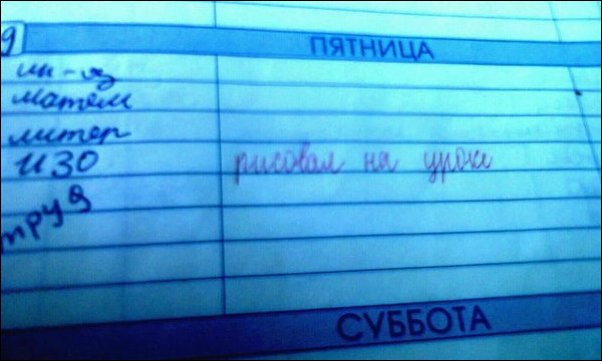 ПЯТНИЦА
ин-яз
матем
литер
ИЗО рисовал на уроке
труд
СУББОТА